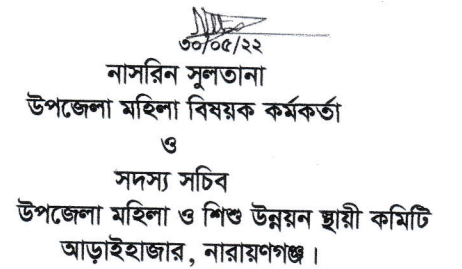 ৩০/০৫/২২
নাসরিন সুলতানা
উপজেলা মহিলা বিষয়ক কর্মকর্তা
ও
সদস্য সচিব
উপজেলা মহিলা ও শিশু উন্নয়ন স্থায়ী কমিটি
আড়াইহাজার, নারায়ণগঞ্জ।